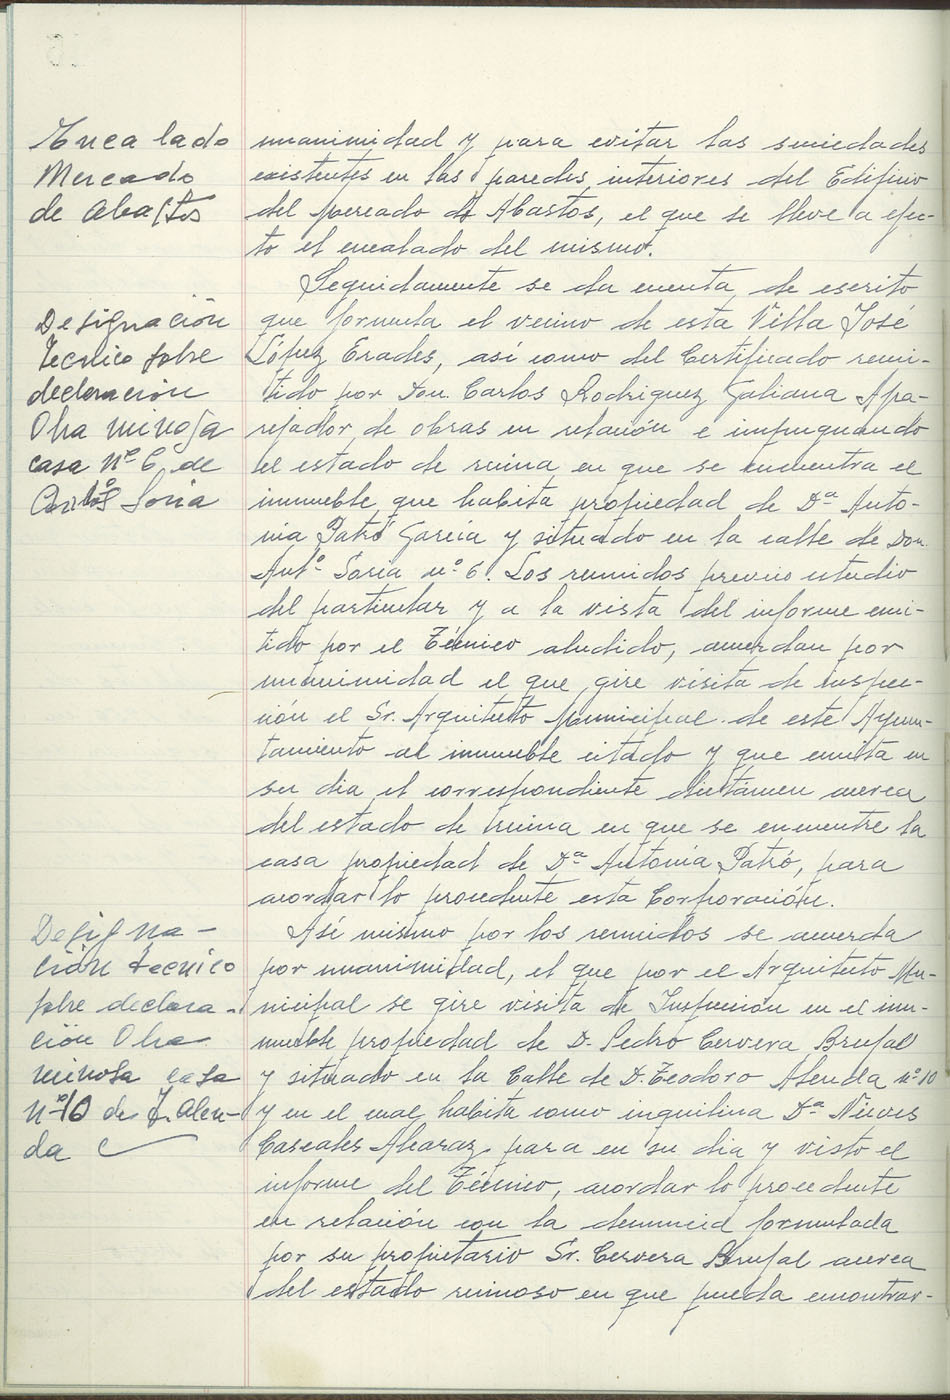 Encalado
Mercado
de Abastos
unanimidad y para evitar las suciedades
existentes en las paredes interiores del Edificio
del mercado de Abastos, el que se lleve a efec-
to el encalado del mismo.
Designación
técnico sobre
declaración
Obra ruinosa
casa nº 6 de
Antº Soria
Seguidamente se da cuenta de escrito
que formula el vecino de esta Villa José
López Erades, así como del Certificado remi-
tido por Don Carlos Rodriguez Galiana Apa-
rejador de obras en relación e impugnando
el estado de ruina en que se encuentra el
inmueble que habita propiedad de Dª Anto-
nia Patró García y situado en la calle de Don
Antº Soria nº 6. Los reunidos previo estudio
del particular y a la vista del informe emi-
tido por el Técnico aludido, acuerdan por
unanimidad el que gire visita de inspec-
ción el Sr. Arquitecto Municipal de este Ayun-
tamiento al inmueble citado y que emita en
su dia el correspondiente dictámen acerca
del estado de ruina en que se encuentre la
casa propiedad de Dª Antonia Patró, para
acordar lo procedente esta Corporación.
Designa-
ción técnico
sobre declara-
ción Obra
ruinosa casa
nº 10 de T. Alen-
da
Así mismo por los reunidos se acuerda
por unanimidad, el que por el Arquitecto Mu-
nicipal se gire visita de Inspección en el inm-
mueble propiedad de D. Pedro Cervera Brufal
y situado en la Calle de D. Teodoro Alenda nº 10
y en el cual habita como inquilina Dª Nieves
Cascales Alcaraz para en su dia y visto el
informe del Técnico, acordar lo procedente
en relación con la denuncia formulada
por su propietario Sr. Cervera Brufal acerca
del estado ruinoso en que pueda encontrar-